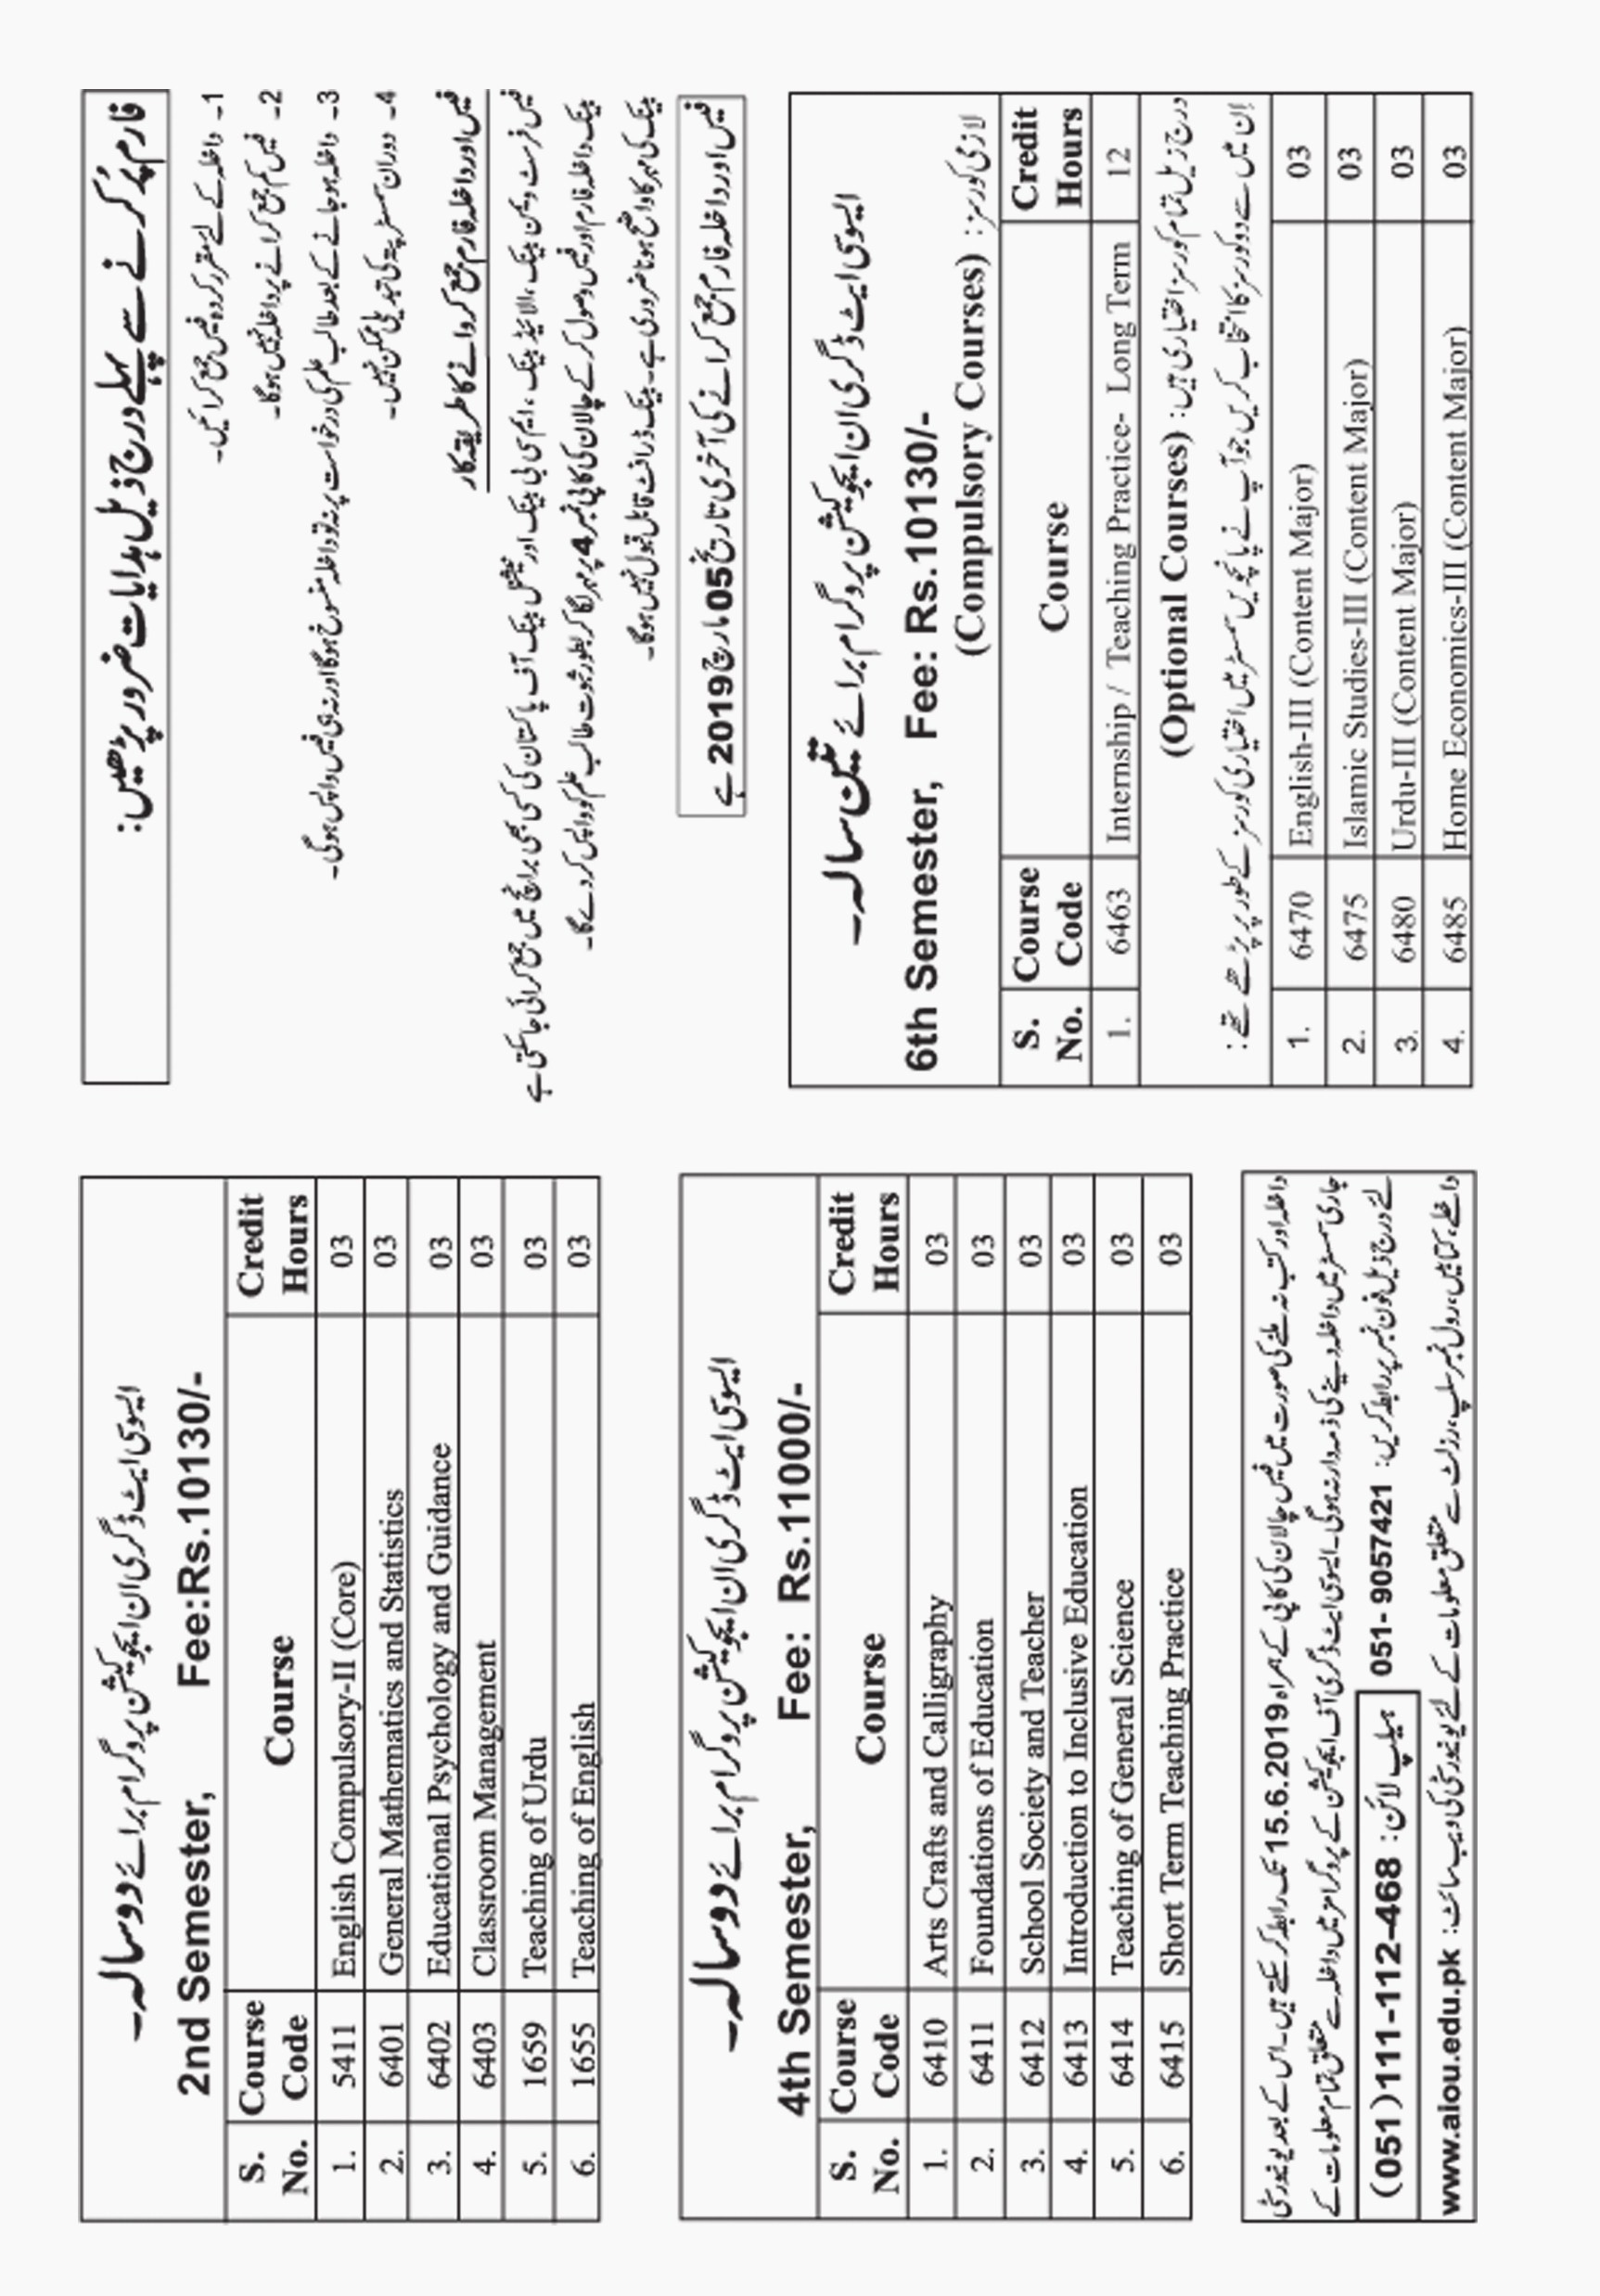 ایسوسی ایٹ ڈگری ان ایجوکیشن پروگرام برائے دو سالہ۔
2nd Semester, Fee:Rs.10130/-
S. No. Course Code Course Credit Hours
1. 5411 English Compulsory-II (Core) 03
2. 6401 General Mathematics and Statistics 03
3. 6402 Educational Psychology and Guidance 03
4. 6403 Classroom Management 03
5. 1659 Teaching of Urdu 03
6. 1655 Teaching of English 03
ایسوسی ایٹ ڈگری ان ایجوکیشن پروگرام برائے دو سالہ۔
4th Semester, Fee: Rs.11000/-
S. No. Course Code Course Credit Hours
1. 6410 Arts Crafts and Calligraphy 03
2. 6411 Foundations of Education 03
3. 6412 School Society and Teacher 03
4. 6413 Introduction to Inclusive Education 03
5. 6414 Teaching of General Science 03
6. 6415 Short Term Teaching Practice 03
داخلہ اور کتب نہ ملنے کی صورت میں فیس چالان کی کاپی کے ہمراہ 15.6.2019 تک رابطہ کر سکتے ہیں۔ اس کے بعد یونیورسٹی
جاری سمسٹر میں داخلہ دینے کی ذمہ دار نہ ہوگی۔ ایسوسی ایٹ ڈگری آف ایجوکیشن کے پروگرامز میں داخلہ سے متعلق تمام معلومات کے
لئے درج ذیل فون نمبر پر رابطہ کریں: 051- 9057421 ہیلپ لائن: (051)111-112-468
داخلے، کتابیں، رول نمبر سلپ، رزلٹ سے متعلق معلومات کے لئے یونیورسٹی کی ویب سائٹ: www.aiou.edu.pk
فارم پُر کرنے سے پہلے درج ذیل ہدایات ضرور پڑھیں:
1۔ داخلہ کے لئے مقرر کردہ فیس جمع کرائیں۔
2۔ فیس کم جمع کرانے پر داخلہ نہیں ہوگا۔
3۔ داخلہ ہو جانے کے بعد طالب علم کی درخواست پر نہ تو داخلہ منسوخ ہوگا اور نہ ہی فیس واپس ہوگی۔
4۔ دوران سمسٹر پتہ کی تبدیلی ممکن نہیں۔
فیس اور داخلہ فارم جمع کروانے کا طریقہ کار
فیس فرسٹ ویمن بینک، الائیڈ بینک، ایم سی بی بینک اور نیشنل بینک آف پاکستان کی کسی بھی برانچ میں جمع کرائی جا سکتی ہے
بینک داخلہ فارم اور فیس وصول کر کے چالان کی کاپی نمبر 4 پر مہر لگا کر بطور ثبوت طالب علم کو واپس کر دے گا۔
بینک کی مہر کا واضح ہونا ضروری ہے۔ بینک ڈرافٹ قابل قبول نہیں ہوگا۔
فیس اور داخلہ فارم جمع کرانے کی آخری تاریخ 05 مارچ 2019 ہے
ایسوسی ایٹ ڈگری ان ایجوکیشن پروگرام برائے تین سالہ۔
6th Semester, Fee: Rs.10130/-
(Compulsory Courses) لازمی کورسز:
S. No. Course Code Course Credit Hours
1. 6463 Internship / Teaching Practice- Long Term 12
(Optional Courses) درج ذیل تمام کورسز اختیاری ہیں:
ان میں سے دو کورسز کا انتخاب کریں جو آپ نے پانچویں سمسٹر میں اختیاری کورسز کے طور پر پڑھے تھے:
1. 6470 English-III (Content Major) 03
2. 6475 Islamic Studies-III (Content Major) 03
3. 6480 Urdu-III (Content Major) 03
4. 6485 Home Economics-III (Content Major) 03